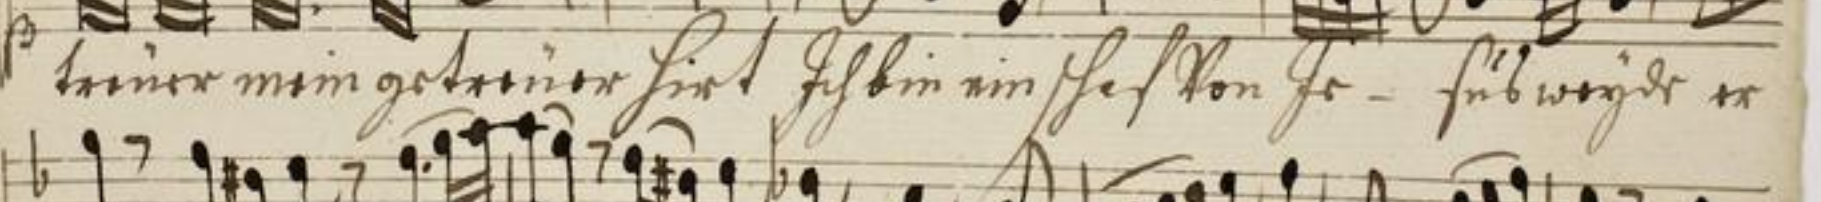 treüer mein getreüer Hirt Ich bin ein schaf Von Je - süs weyde er